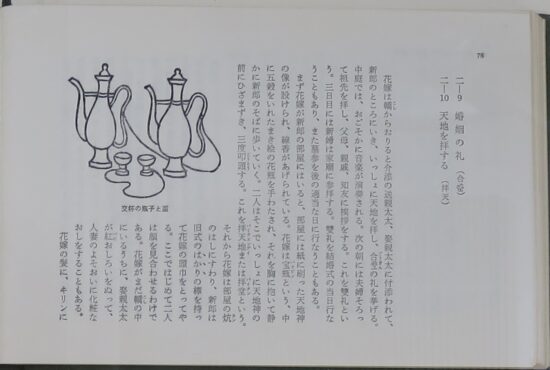 76
二―9 婚姻の礼(合卺)
二―10 天地を拝する(拝天)
花嫁は轎からおりると介添の送親太太、娶親太太に付添われて、
新郎のところにいき、いっしょに天地を拝し、合卺の礼を挙げる。
中庭では、おごそかに音楽が演奏される。次の朝には夫婦そろっ
て祖先を拝し、父母、親戚、知友に挨拶をする。これを双礼とい
う。三日目には新婦は家廟に参拝する。双礼を結婚式の当日行な
うこともあり、また墓参を後の適当な日に行なうこともある。
まず花嫁が新郎の部屋にはいると、部屋には紙に刷った天地神
の像が設けられ、線香があげられている。花嫁は宝瓶という、中
に五穀をいれたまき絵の花瓶を手わたされ、それを胸に抱いて静
かに新郎のそばに歩いていく。二人はそこでいっしょに天地神の
前にひざまずき、三度叩頭する。これを拝天地または拝堂という。
それから花嫁は部屋の炕
のはしにすわり、新郎は
旧式のはかりの棹を持っ
て花嫁の頭巾をとってや
る。ここではじめて二人
は顔を見合わせるわけで
ある。花嫁がまだ轎の中
にいるうちに、娶親太太
が紅おしろいをぬって、
人妻のよそおいに化粧な
おしをすることもある。
花嫁の髪に、キリンに
交杯の瓶子と盃